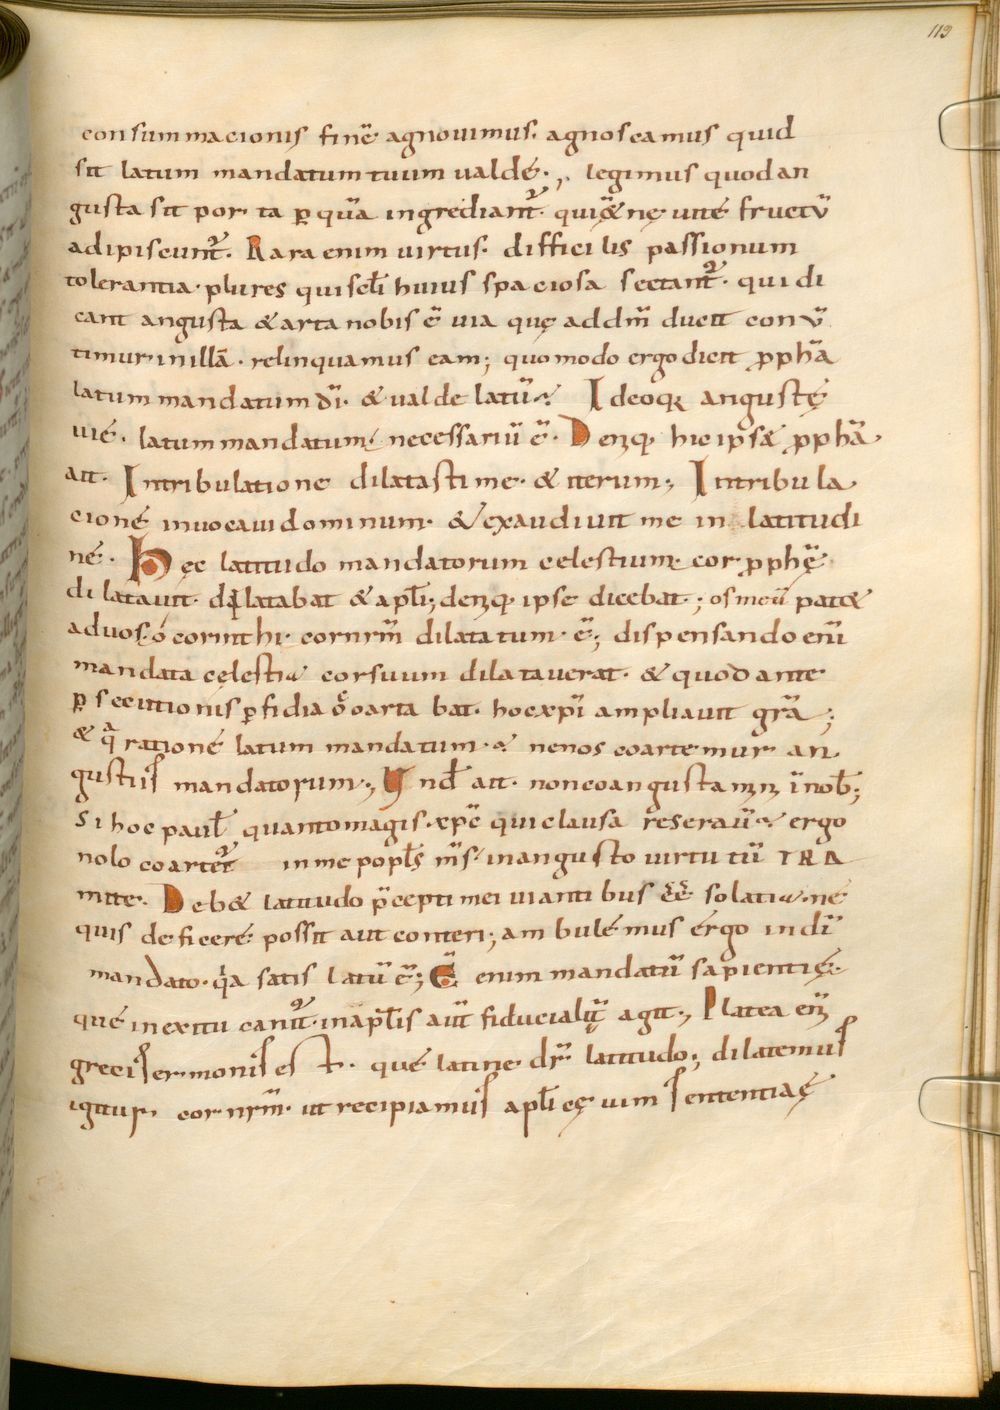 113
consummacionis finē agnouimus. agnoscamus quid
sit latum mandatum tuum ualde., legimus quod an
gusta sit por ta ꝑ quā ingrediant᷑. qui &ęnę uitę fructū
adipiscunt᷑. Rara enim uirtus. difficilis passionum
tolerantia. plures qui scƚi huius spaciosa sectant᷑. qui di
cant angusta & arta nobis ē uia quę ad dm̄ ducit conū
timur in illā. relinquamus eam; quomodo ergo dicit ꝓphā
latum mandatum dī. & ualde latū. Ideoq; angustę
uię. latum mandatum necessariū ē. Deniq; hic ipse ꝓphā
ait. In tribulatione dilatasti me. & iterum. In tribula
cione inuocaui dominum. & exaudiuit me in latitudi
ne. Hęc latitudo mandatorum celestium. cor ꝓphę
dilatauit. dilatabat & apƚi; deniq; ipse dicebat; os meū pat&
ad uos. o corinthi. cor nrm̄ dilatatum. ē; dispensando enī
mandata cęlestia cor suum dilatauerat. & quod ante
ꝑsecutionis ꝑfidia coartabat. hoc xp̄i ampliauit grā;
& qͣ ratione latum mandatum. ne nos coartemur an
gustiis mandatorum., Vnđ ait. non coangustamini in nob̄;
Si hoc pauƚ quanto magis. xp̄c qui clausa reseraū. ergo
nolo coartet᷑ in me popƚs m̄s. in angusto uirtutū TRA
mite. Deb& latitudo p̄cepti mei uiantibus ēē solatia. ne
quis deficere possit aut conteri; ambulemus ergo in dī
mandato. qͥa satis latū ē; Ē enim mandatū sapientię.
que in exitu canit᷑. in apƚis aut̄ fiducialit̄ agit., Platea enī
greci sermonis est. que latine dr̄ latitudo; dilatemus
igitur. cor nrm̄. ut recipiamus apƚicę uim sententiaę